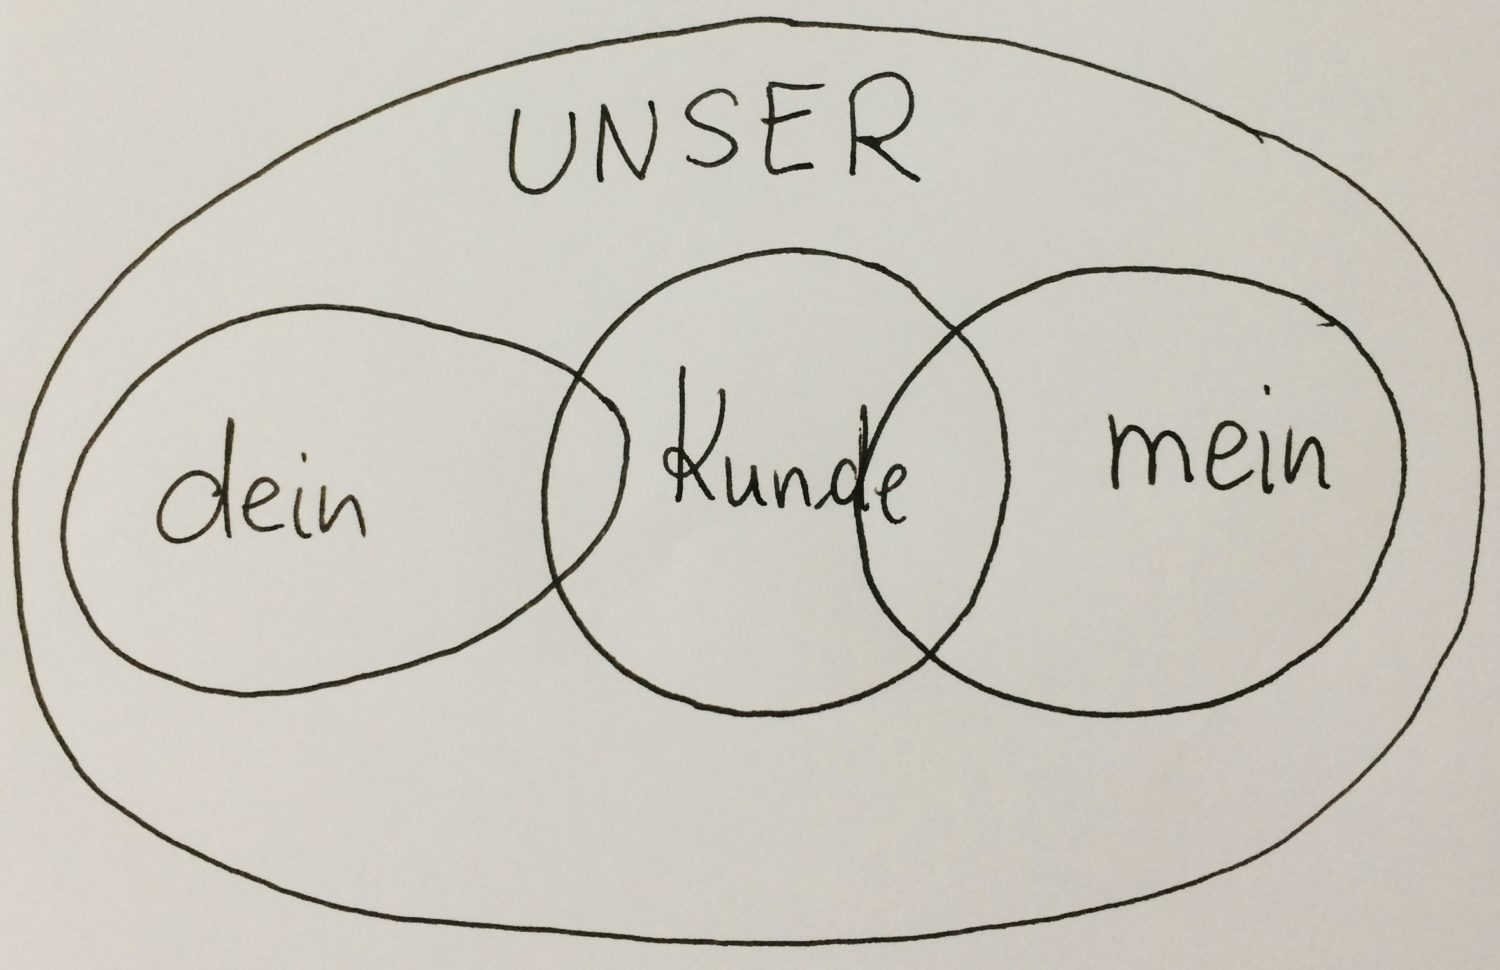 UNSER
dein Kunde mein